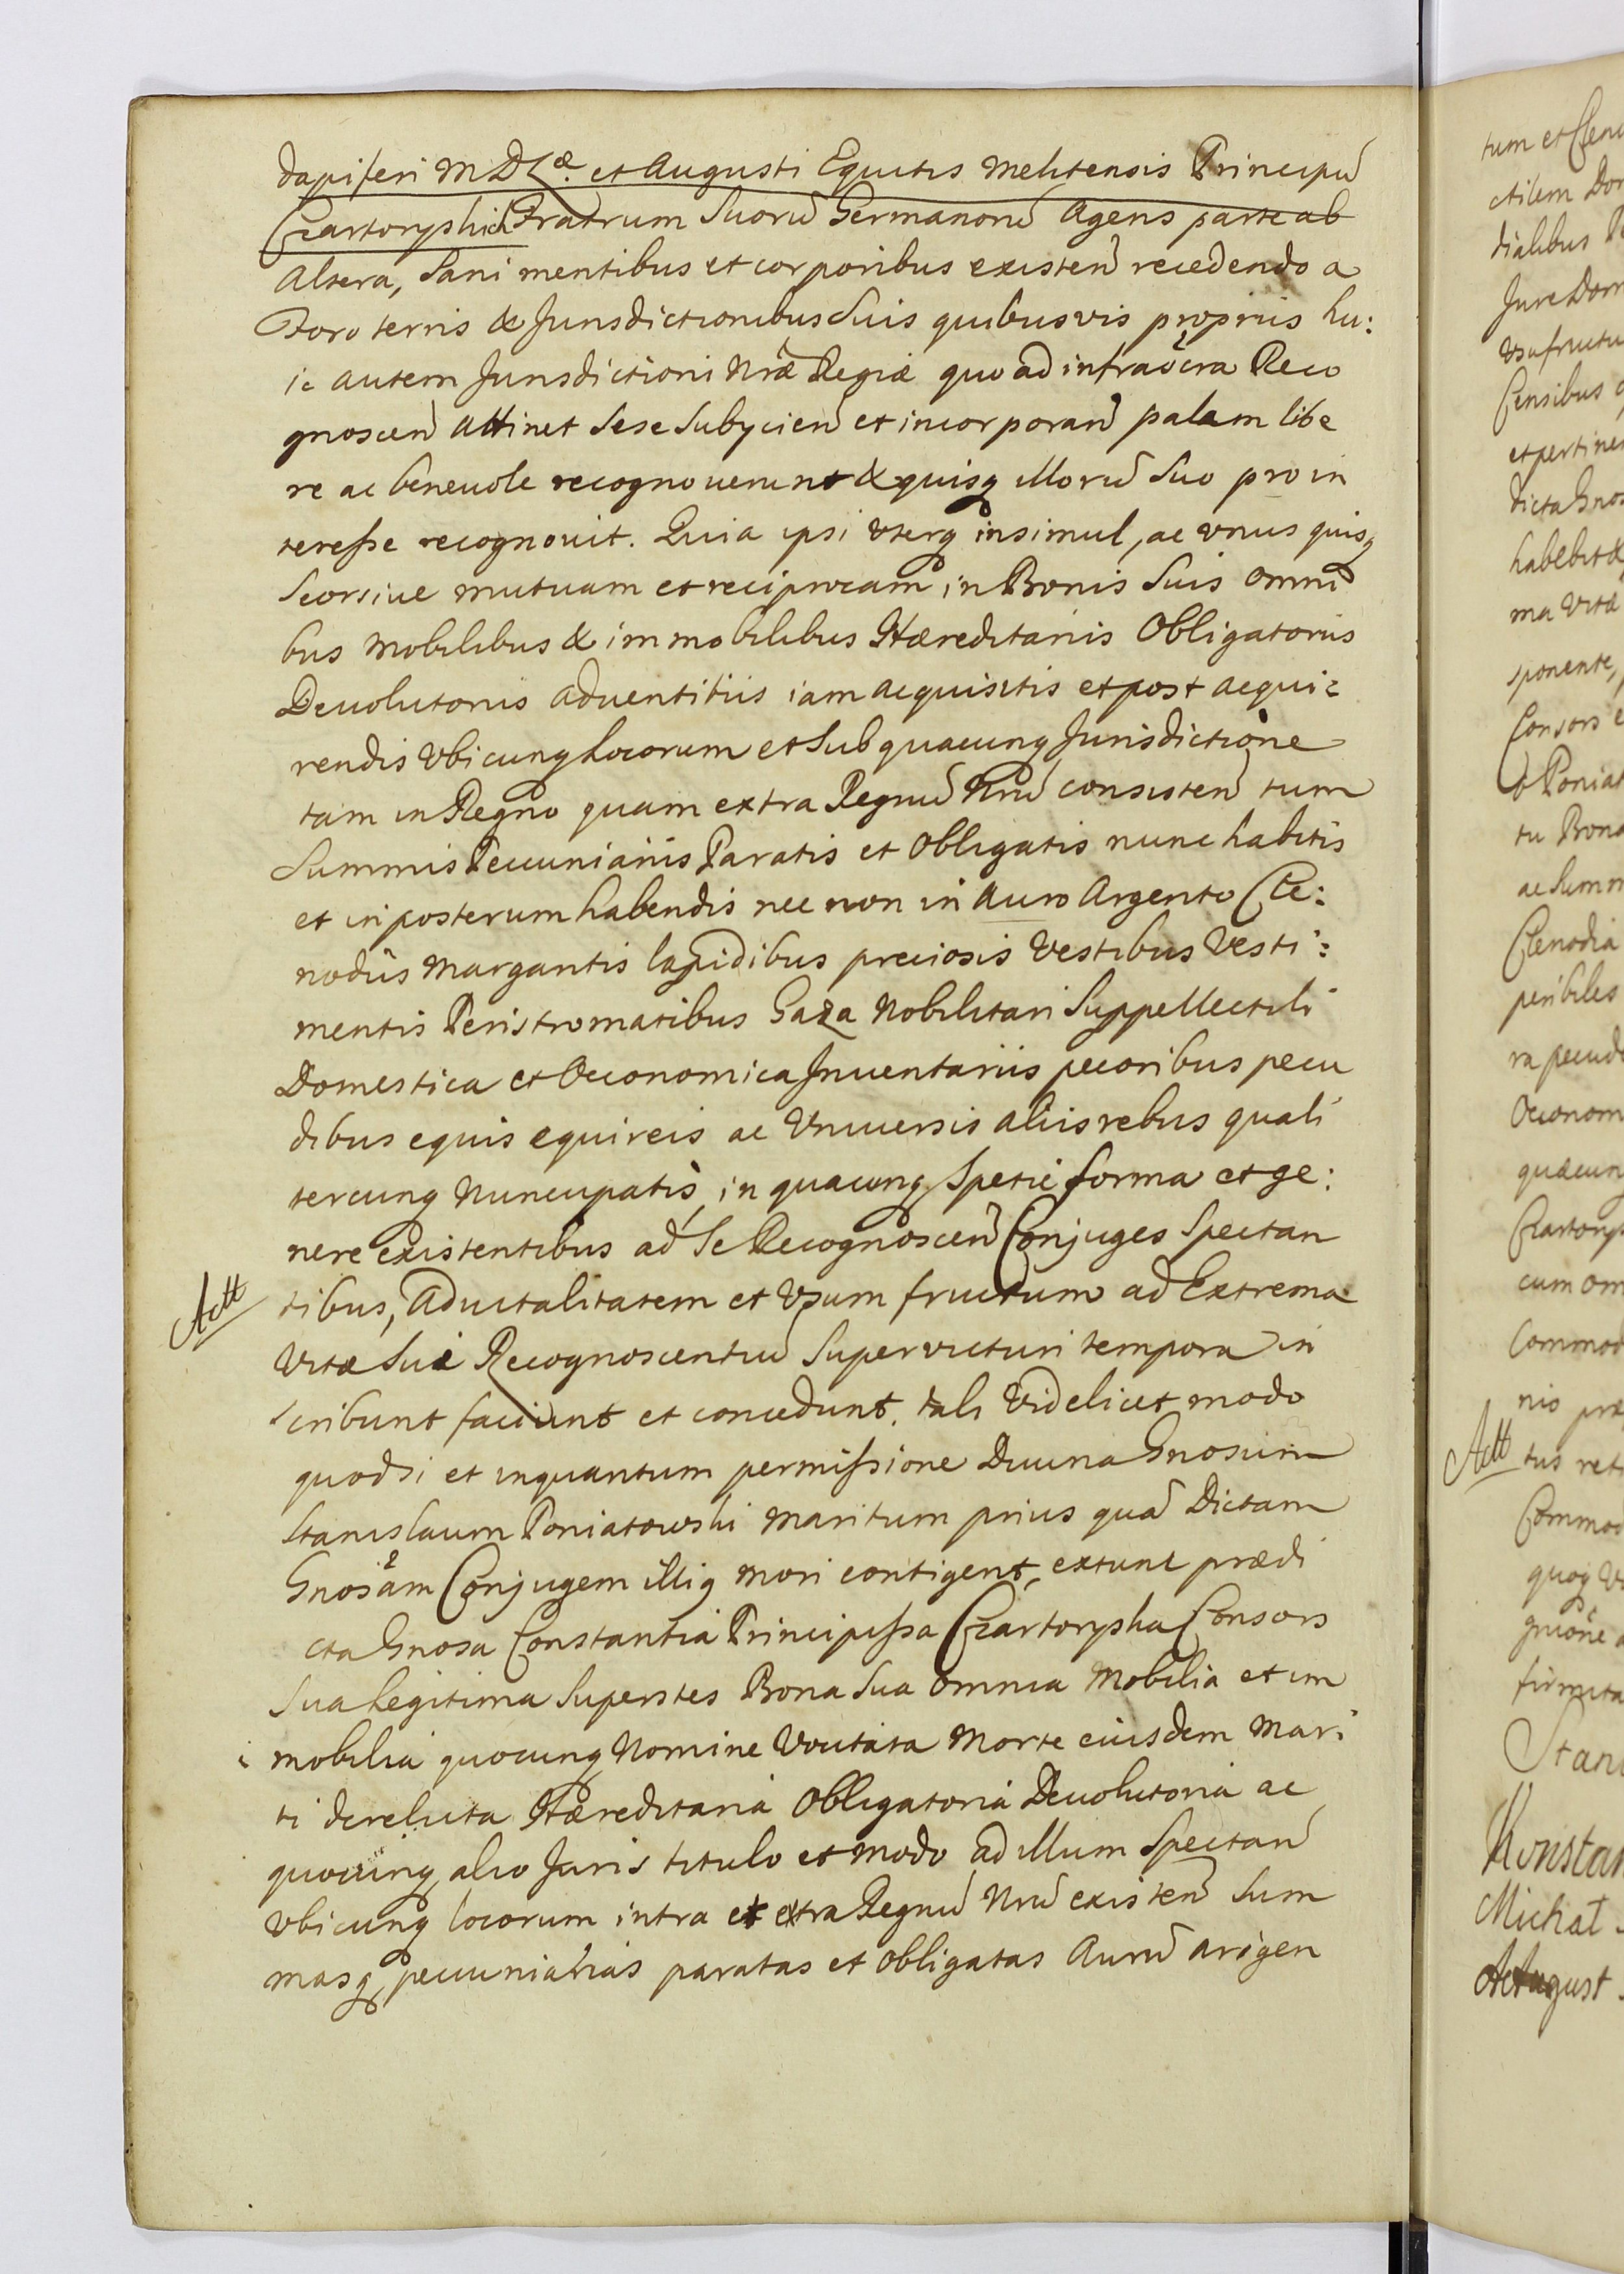 dapiferi M D Læ. et Augusti Equitis Melitensis Principũ
Czartoryskich Fratrum Suorũ Germanorũ Agens parte ab
Altera, Sani mentibus et corporibus existeñ recedendo a
Foro terris & Jurisdictionibus Suis quibusvis proprijs hu:
ic autem Jurisdictioni Nræ Regiæ quo ad infrascra Reco
gnosceñ attinet Sese Subijcieñ et incorporañ palam libe
re ac beneuole recognouerunt & quisq illorũ Suo pro in
teresse recognouit. Quia ipsi vterq insimul, ac vnus quisq
Seorsiue mutuam et reciprocam in Bonis Suis omni
bus Mobilibus & immobilibus Hæreditariis Obligatoriis
Deuolutoriis aduentitiis iam acquisitis et post acqui:
rendis Vbicunq Locorum et Sub quacunq Jurisdictione
tam in Regno quam extra Regnũ Nrũ consisteñ tum
Summis Pecuniariis Paratis et Obligatis nunc habitis
et in posterum habendis nec non in Auro Argento Cle:
nodiis Margaritis lapidibus preciosis Vestibus Vesti:
mentis Peristromatibus Gaza Nobilitari Suppellectili
Domestica et Oeconomica Inuentariis pecoribus pecu
dibus equis equireis ac Vniuersis aliis rebus quali
tercunq Nuncupatis, in quacunq Spetie forma et ge:
nere existentibus ad Se Recognosceñ Conjuges Spectan
Actt tibus, Aduitalitatem et Vsum fructum ad Extrema
Vitæ Suæ Recognoscentiũ Supervicturi tempora in
scribunt faciunt et concedunt, tali Videlicet modo
quod si et inquantum permissione Diuina Gnosum
Stanislaum Poniatowski Maritum prius quã Dictam
Gnosam Conjugem illiq mori contigerit, extunc prædi
cta Gnosa Constantia Principissa Czartoryska Consors
Sua Legitima Superstes Bona Sua omnia Mobilia et im
i mobilia quocunq Nomine Vocitata Morte eiusdem Mari
ti derelicta Hæreditaria Obligatoria Deuolutoria ac
quocunq alio Juris titulo et modo ad illum Spectañ
Vbicunq locorum intra et extra Regnũ Nrũ existeñ Sum
masq pecuniarias paratas et obligatas Aurũ arigen
tum et Clen
ctilem Dom
dialibus
Jure Dom
Vsufructu
Censibus
et pertinen
dicta Gnos
habebit &
ma Vitæ
sponente,
Consors
Poniat
tu Bona
ac Summ
Clenodia
peribiles
ra pecud
Oeconom
quæcun
Czartorys
cum om
Commod
nis præ
Actt tus ret
Commod
quoq
gnione
firmita
Stani
Konstan
Michał
August